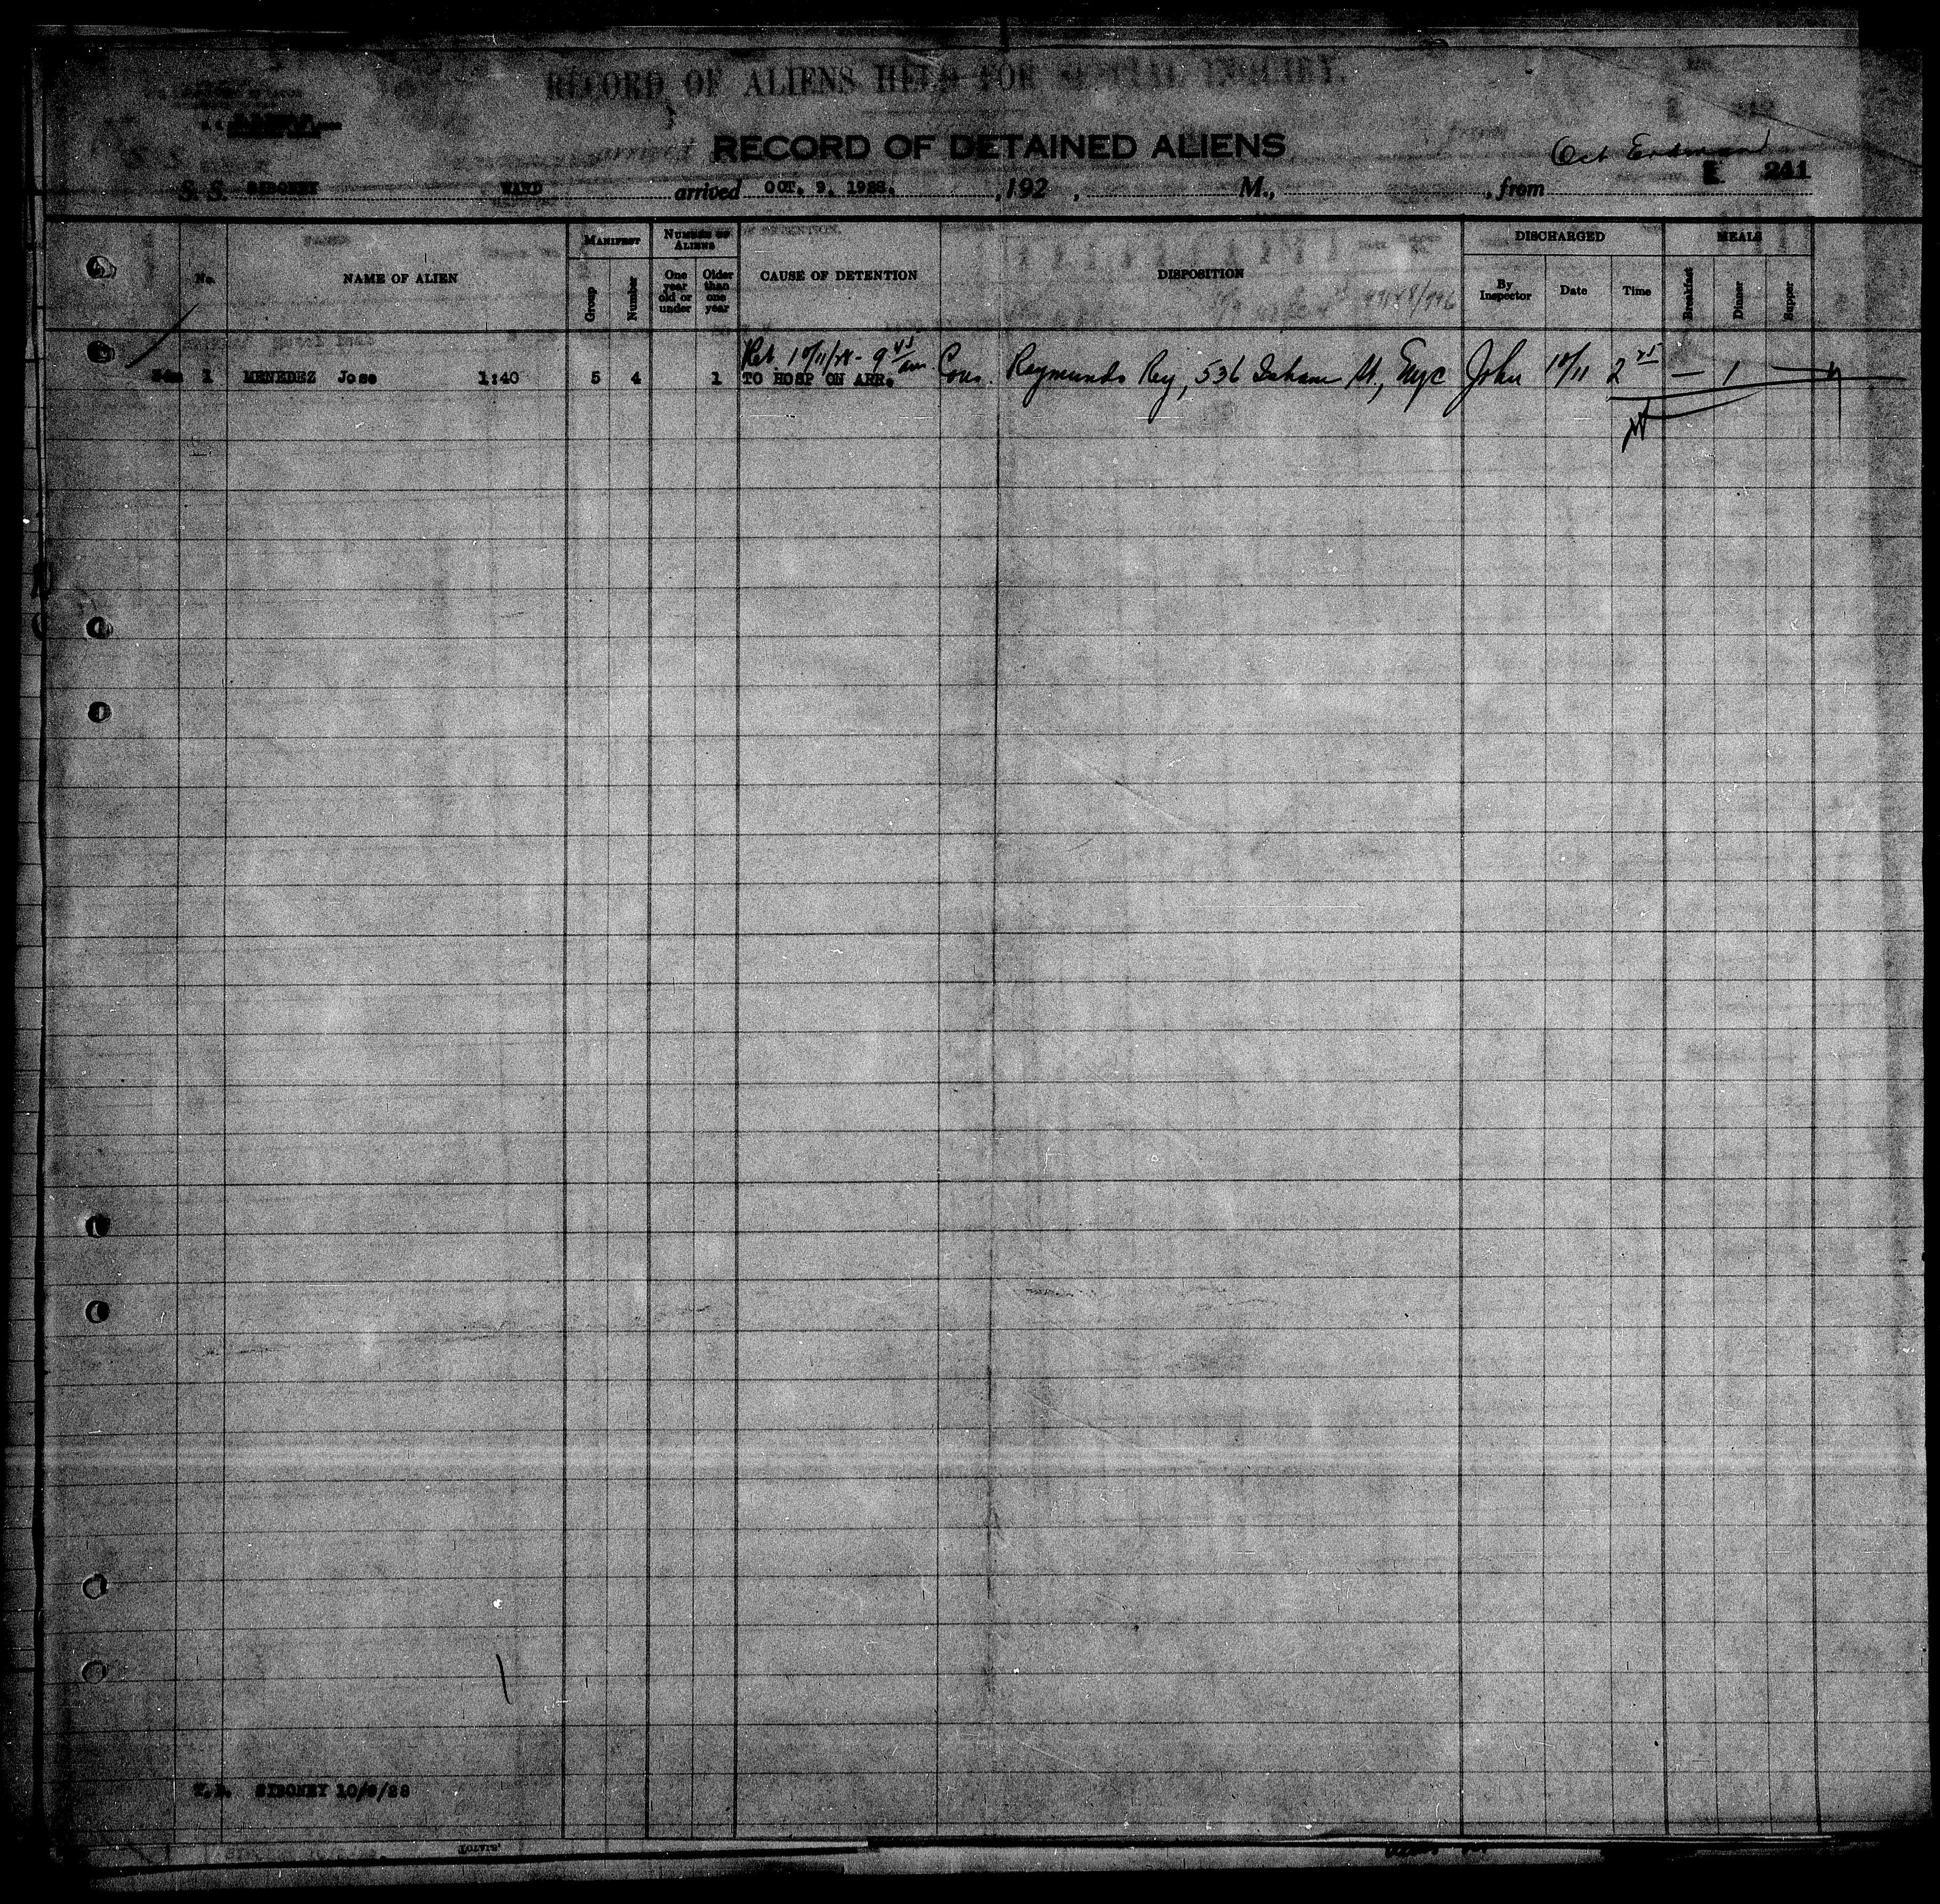 RECORD OF ALIENS HELD FOR SPECIAL INQUIRY.
RECORD OF DETAINED ALIENS
Oct Erdman
E 241
S. S. SIBONEY WARD arrived OCT. 9, 1928. , 192 , M., , from
No. NAME OF ALIEN MANIFEST Group Number NUMBER OF ALIENS One year old or under Older than one year CAUSE OF DETENTION DISPOSITION DISCHARGED By Inspector Date Time MEALS Breakfast Dinner Supper
Ret 10/11/28 - 9 45 am
1 MENEDEZ Jose 1:40 5 4 1 TO HOSP ON ARR. Cous. Raymundo Rey, 536 Isham St., NYC John 10/11 2 25 — 1 —
T.D. SIBONEY 10/9/28